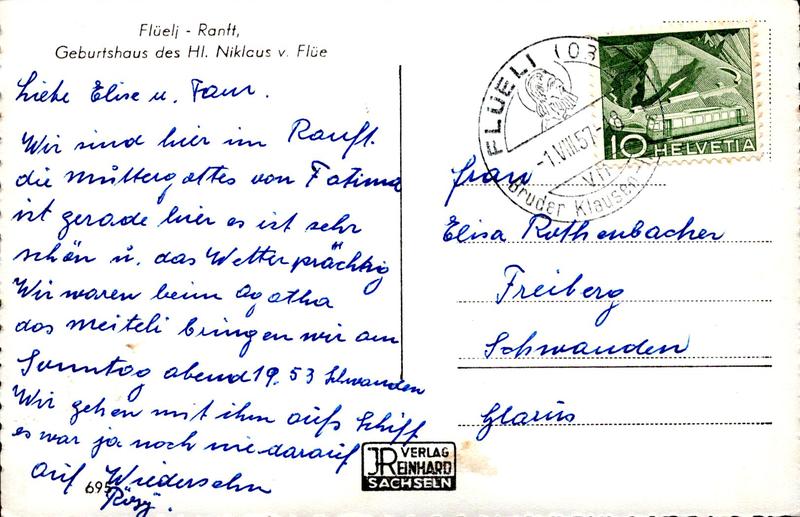 Flüelj - Ranft,
Geburtshaus des Hl. Niklaus v. Flüe
Liebe Elise u. Fam.
Wir sind hier im Ranft.
die Müttergottes von Fatima
ist gerade hier es ist sehr
schön u. das Wetter prächtig
Wir waren beim Agatha
das Meiteli bringen wir am
Sonntag abend 19.53 Schwanden
Wir gehen mit ihm aufs Schiff
es war ja noch nie darauf
Auf Wiedersehn
Rösy.
695
JR VERLAG
REINHARD
SACHSELN
FLÜELI (OB
-1.VIII.57-8
VII
Bruder Klausen-
10 HELVETIA
Frau
Elisa Rothenbacher
Freiberg
Schwanden
Glarus